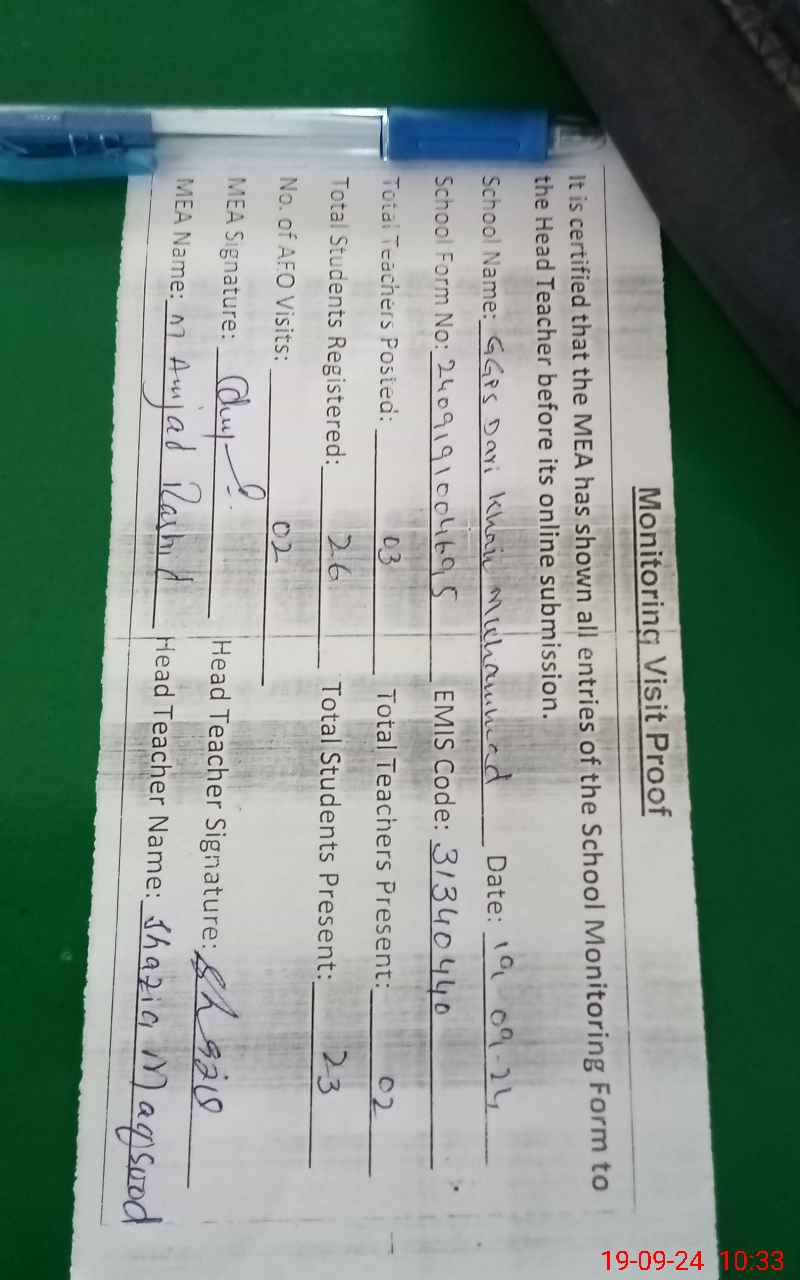 Monitoring Visit Proof
It is certified that the MEA has shown all entries of the School Monitoring Form to
the Head Teacher before its online submission.
School Name: GGPS Dari Khair Muhammad Date: 19-09-24
School Form No: 2409191004695 EMIS Code: 31340440
Total Teachers Posted: 03 Total Teachers Present: 02
Total Students Registered: 26 Total Students Present: 23
No. of AEO Visits: 02
MEA Signature: Head Teacher Signature: Shazia
MEA Name: M Amjad Rashid Head Teacher Name: Shazia Maqsood
19-09-24 10:33